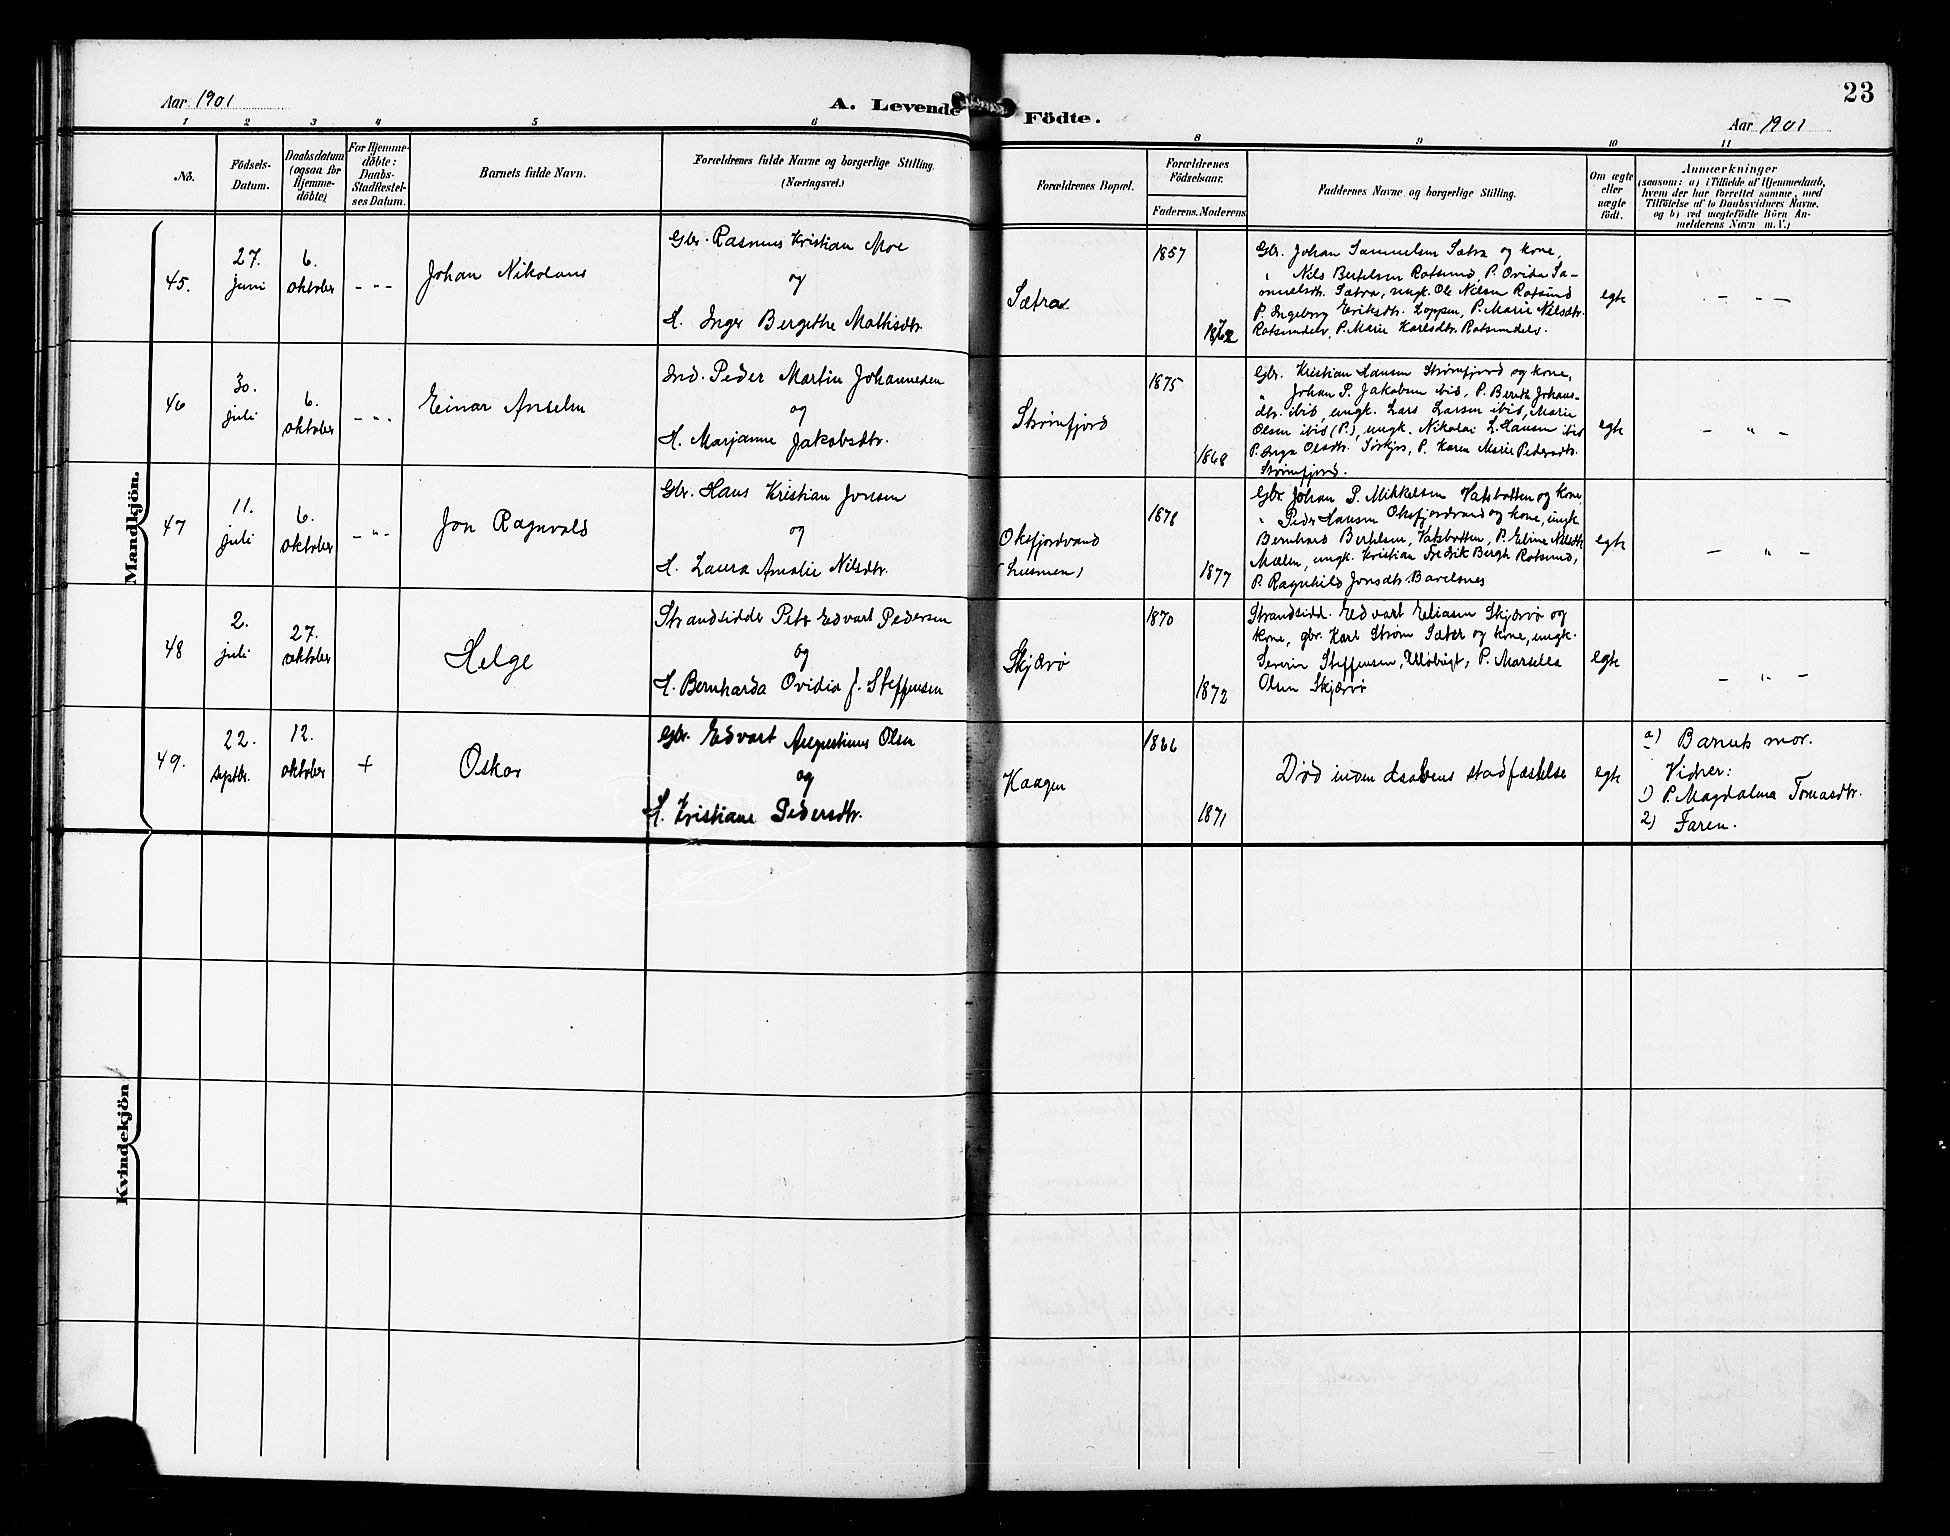 Aar 1901
A. Levende Födte.
23
Aar 1901
1 2 3 4 5 6 8 9 10 11
No.
Födsels-
Datum.
Daabsdatum
(ogsaa for
Hjemme-
döbte)
For Hjemme-
döbte:
Daabs-
Stadfestel-
ses Datum.
Barnets fulde Navn.
Forældrenes fulde Navne og borgerlige Stilling.
(Næringsvei.)
Forældrenes Bopæl.
Forældrenes
Födselsaar.
Faderens. Moderens.
Faddernes Navne og borgerlige Stilling.
Om ægte
eller
uægte
født.
Anmærkninger
(saasom: a) i Tilfælde af Hjemmedaab,
hvem der har forrettet samme, med
Tilföielse af to Daabsvidners Navne.
og b) ved uægtefödte Börn An-
melderens Navn m.V.)
Mandkjön.
45.
27.
juni
6.
oktober
- " -
Johan Nikolaus
Gbr. Rasmus Kristian Moe
og
H. Inger Bergethe Mathisdtr.
Sætra
1857
1862
Gbr. Johan Samuelsen Sætra og kone,
" Nils Bertelsen Rotsund, P. Ovida Sa-
muelsdtr. Sætra, ungk. Ole Nilsen Rotsund
P. Ingeborg Eriksdtr. Loppen, P. Marie Nilsdtr.
Rotsundelv, P. Marie Karlsdtr. Rotsundelv.
egte
- " -
46
30.
juli
6.
oktober
- " -
Einar Anselm
Ind. Peder Martin Johannesen
og
H. Marjanne Jakobsdtr.
Strømfjord
1875
1868
Gbr. Kristian Hansen Strømfjord og kone,
" Johan P. Jakobsen ibid, P. Berith Johans-
dtr. ibid, ungk. Lars Larsen ibid, Marie
Olsen ibid (P.), ungk. Nikolai L. Hansen ibid
P. Inga Olsdtr. Sørkjos, P. Karen Marie Pedersdtr.
Strømfjord.
egte
- " -
47
11.
juli
6.
oktober
- " -
Jon Ragnvald
Gbr. Hans Kristian Jonsen
og
H. Laura Amalie Nilsdtr.
Oksfjordvand
(Lusmen)
1878
1877
Gbr. Johan P. Mikkelsen Vatsbotten og kone
" Peder Hansen Oksfjordvand og kone, ungk.
Bernhard Bertelsen, Vatsbotten, P. Eline Nilsdtr
Mælen, ungk. Kristian Fredrik Bergh Rotsund,
P. Ragnhild Jonsdtr. Bavelsnes
egte
- " -
48
2.
juli
27.
oktober
Helge
Strandsidder Petr Edvart Pedersen
og
H. Bernharda Ovidia f. Steffensen
Skjærvø
1870
1872
Strandsidd. Edvart Eliasen Skjærvø og
kone, gbr. Karl Strøm Sæter og kone, ungk.
Severin Steffensen, Uløbugt, P. Marsella
Olsen Skjærvø
egte
- " -
49.
22.
septbr.
12.
oktober
+
Oskar
Gbr. Edvart Augustinus Olsen
og
H. Kristiane Pedersdtr.
Kaagen
1866
1871
Død inden daabens stadfæstelse
egte
a) Barnets mor.
Vidner:
1) P. Magdalena Tomasdtr.
2) Faren.
Kvindekjön